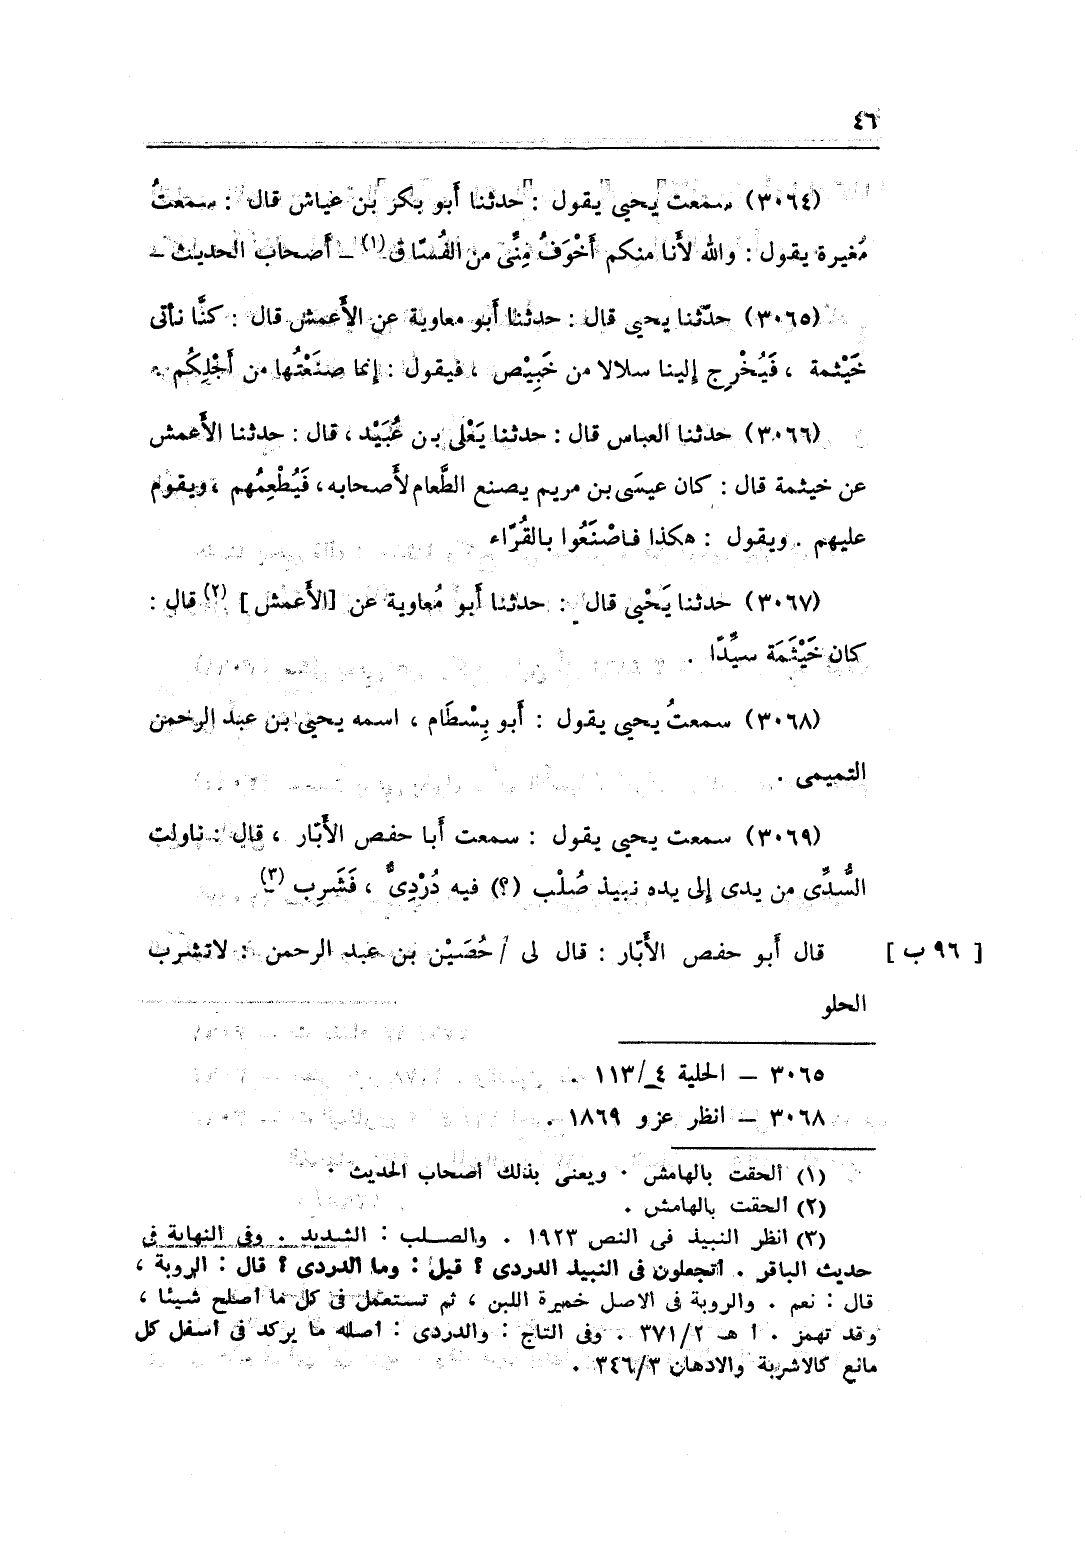 ٤٦
(٣٠٦٤) سمعت يحيى يقول : حدثنا أبو بكر بن عياش قال : سمعتُ
مُغيرة يقول : والله لأَنا منكم أَخْوَفُ مِنِّى من الفُسّاق (١) ـ أَصحاب الحديث ـ
(٣٠٦٥) حدّثنا يحيى قال : حدثنا أبو معاوية عن الأَعمش قال : كنَّا نأتى
خَيْثمة ، فَيُخْرِج إلينا سلالا من خَبِيْص ، فيقول : إنما صنَعْتُها من أَجْلِكُم .
(٣٠٦٦) حدثنا العباس قال : حدثنا يَعْلى بن عُبَيْد ، قال : حدثنا الأعمش
عن خيثمة قال : كان عيسَى بن مريم يصنع الطَّعام لأَصحابه ، فَيُطْعِمُهم ، ويقوم
عليهم . ويقول : هكذا فاصْنَعُوا بالقُرّاء
(٣٠٦٧) حدثنا يَحْيى قال : حدثنا أَبو مُعاوية عن [الأَعمش] (٢) قال :
كان خَيْثَمَة سيِّدًا .
(٣٠٦٨) سمعتُ يحيى يقول : أَبو بِسْطَام ، اسمه يحيى بن عبد الرحمن
التميمى .
(٣٠٦٩) سمعت يحيى يقول : سمعت أَبا حفص الأَبّار ، قال : ناولت
السُّدِّى من يدى إلى يده نبيذ صُلْب (؟) فيه دُرْدِىٌّ ، فَشَرِب (٣)
[ ٩٦ ب ] قال أَبو حفص الأَبّار : قال لى / حُصَيْن بن عبد الرحمن : لاتشرب
الحلو
٣٠٦٥ ـ الحلية ٤/ ١١٣ .
٣٠٦٨ ـ انظر عزو ١٨٦٩ .
(١) ألحقت بالهامش . ويعنى بذلك أصحاب الحديث .
(٢) ألحقت بالهامش .
(٣) انظر النبيذ فى النص ١٩٢٣ . والصلب : الشديد . وفى النهاية فى
حديث الباقر . أتجعلون فى النبيذ الدردى ؟ قيل : وما الدردى ؟ قال : الروبة ،
قال : نعم . والروبة فى الاصل خميرة اللبن ، ثم تستعمل فى كل ما أصلح شيئا ،
وقد تهمز . أ هـ ٣٧١/٢ . وفى التاج : والدردى : أصله ما يركد فى أسفل كل
مائع كالاشربة والادهان ٣٤٦/٣ .